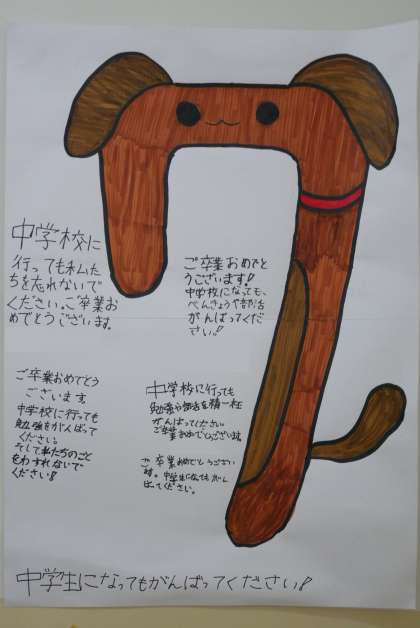 中学校に
行っても私た
ちを忘れないで
ください。ご卒業お
めでとうございます。
ご卒業おめでと
うございます!!
中学校になっても、
べんきょうや部活
がんばってくだ
さい!!
ご卒業おめでとう
ございます
中学校に行っても
勉強をがんばって
ください。
そして私たちのこと
をわすれないで
ください!!
中学校に行っても
勉強や部活を精一杯
がんばってください
ご卒業おめでとうございます。
ご卒業おめでとうござい
ます。中学生になってもがん
ばってください。
中学生になってもがんばってください!